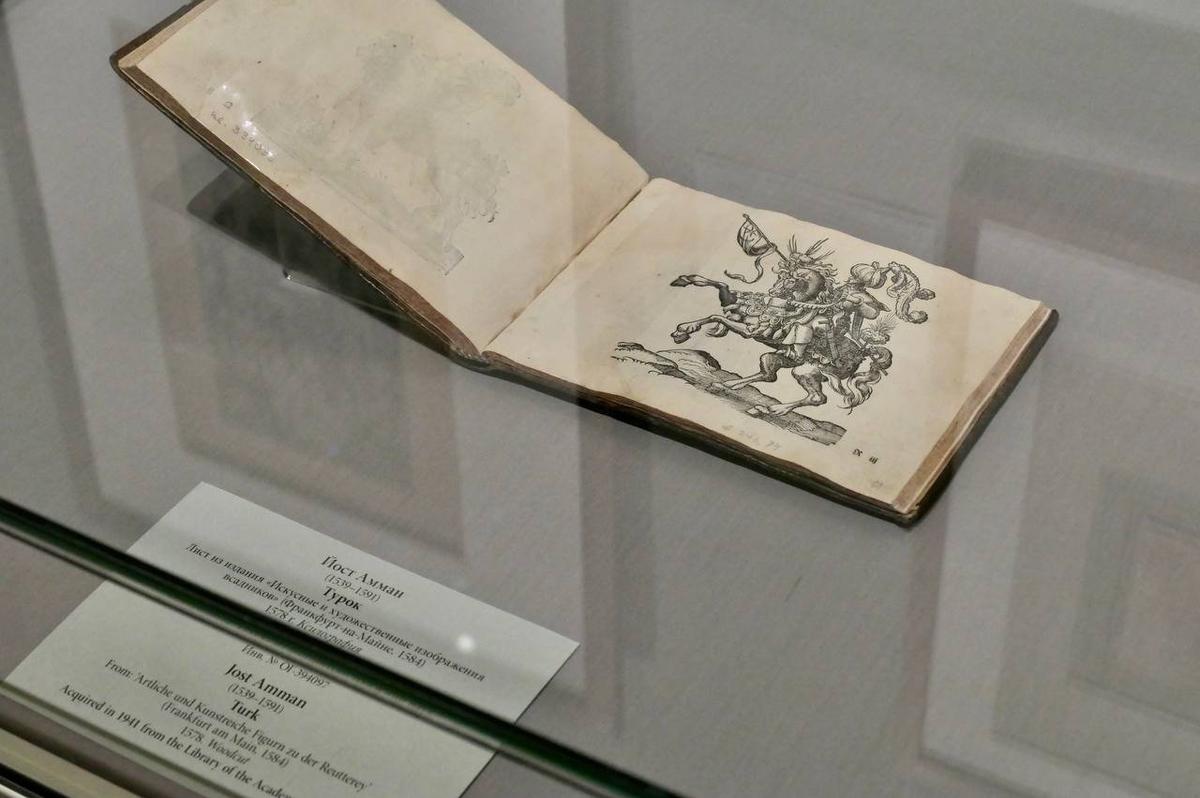 Йост Амман
(1539–1591)
Турок
Лист из издания «Искусные и художественные изображения
всадников» (Франкфурт-на-Майне, 1584)
1578 г. Ксилография
Инв. № ОГ-394097
Jost Amman
(1539–1591)
Turk
From: 'Artliche und Kunstreiche Figurn zu der Reutterey'
(Frankfurt am Main, 1584)
1578. Woodcut
Acquired in 1941 from the Library of the